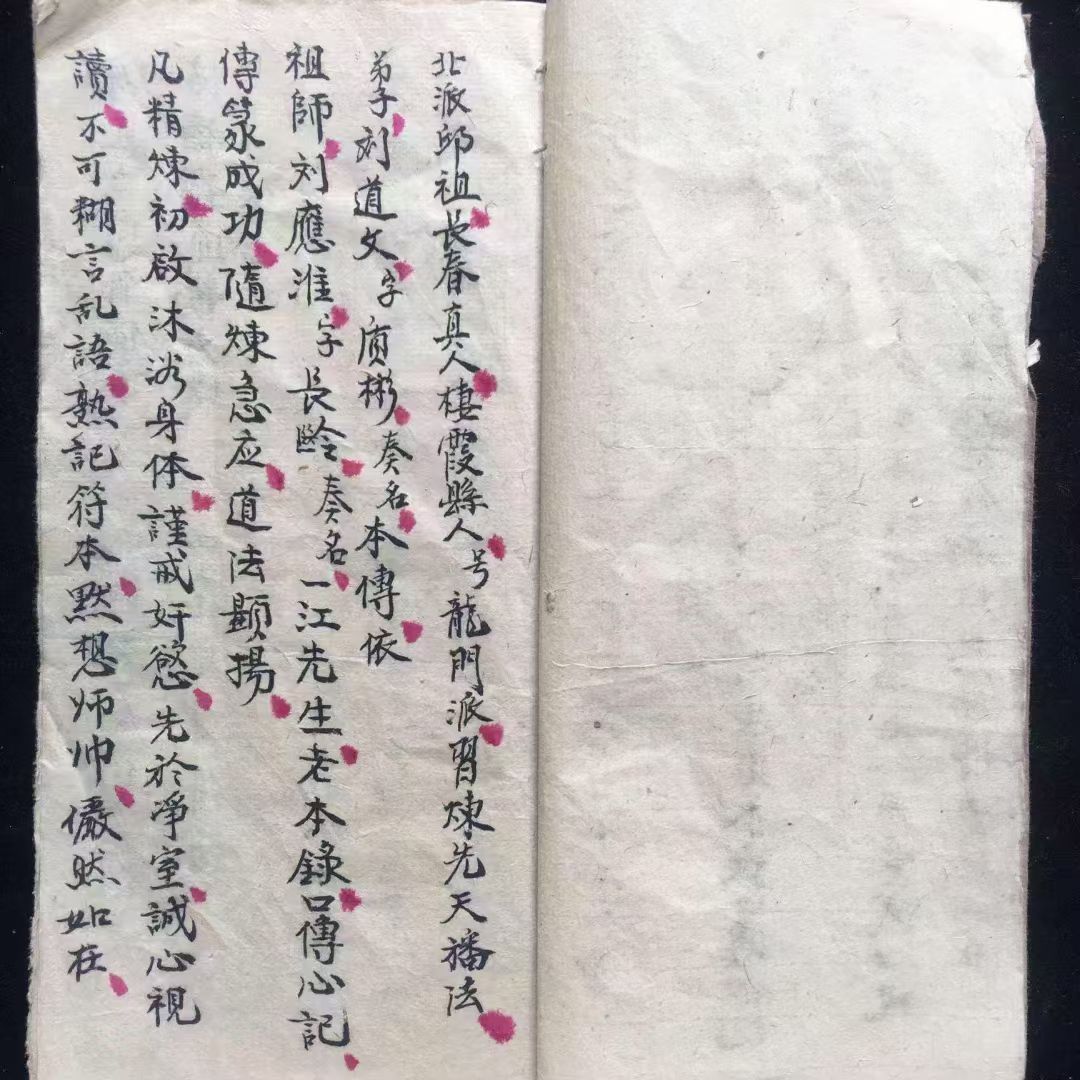 北派邱祖長春真人棲霞縣人号龍門派習煉先天播法
弟子刘道文字质彬奏名本傳依
祖師刘應淮字長齡奏名一江先生老本錄口傳心記
傳篆成功隨煉急应道法顯揚
凡精煉初啟沐浴身体謹戒奸慾先於凈室誠心視
讀不可糊言乱語熟記符本默想师帅儼然如在